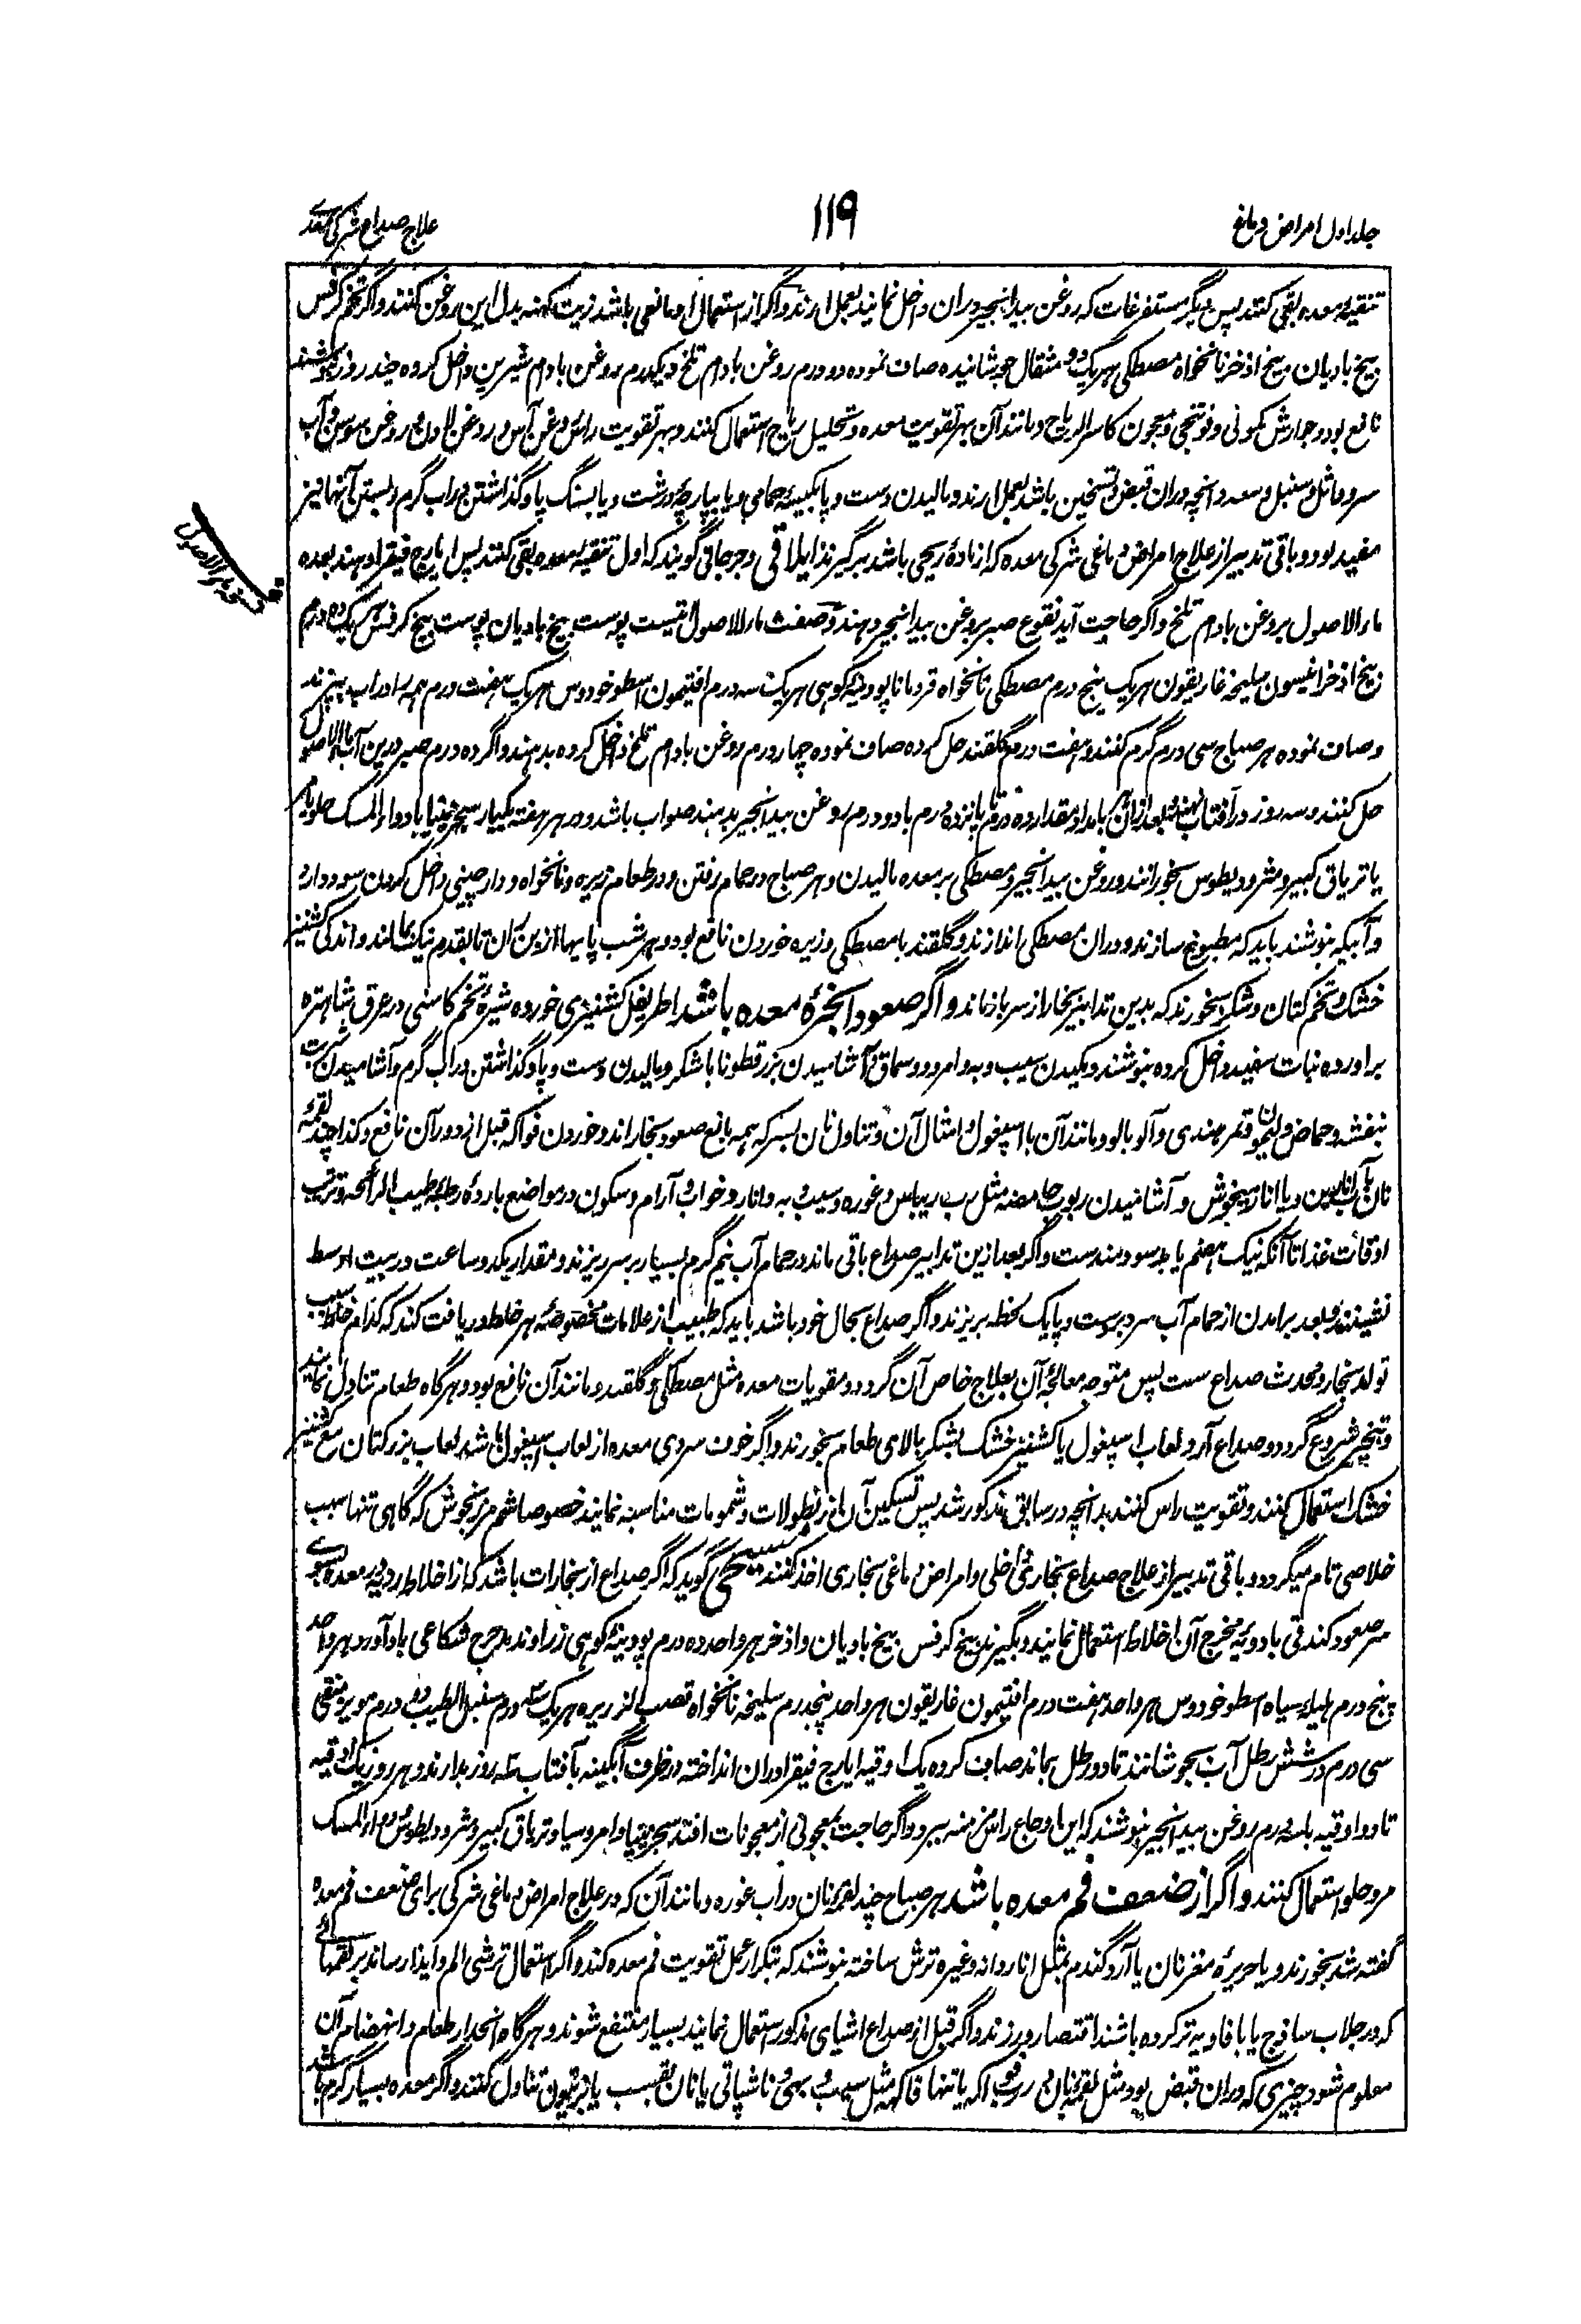 جلد اول امراض دماغ
۱۱۹
علاج صداع شرکی معدی
تنقیهٔ معده بقی کنند پس دیگر مستفرغات که روغن بیدانجیر دران داخل نمایند بعمل آرند و اگر از استعمال او مانعی باشد زیت کهنه بدل این روغن کنند و اگر تخم کرفس
بیخ بادیان بیخ اذخر نانخواه مصطکی هریک دو مثقال جوشانیده صاف نموده دو درم روغن بادام تلخ و یکدرم روغن بادام شیرین داخل کرده چند روز بنوشند
نافع بود و جوارش کمونی و فوتنجی و معجون کاسر الریاح و مانند آن بهر تقویت معده و تحلیل ریاح استعمال کنند و بهر تقویت راس روغن آس و روغن لادن و روغن سوسن و آب
سرو و اثل و سنبل و سعد و آنچه دران قبض و تسخین باشد بعمل آرند و مالیدن دست و پا بکیسهٔ حمامی و یا بپارچهٔ درشت و یا بسنگ پا و گذاشتن در آب گرم و بستن آنها نیز
مفید بود و باقی تدبیر از علاج امراض دماغی شرکی معده که از مادهٔ ریحی باشد برگیرند ایلاقی و جرجانی گویند که اول تنقیهٔ معده بقی کنند پس ایارج فیقرا دهند بعده
ماء الاصول بروغن بادام تلخ و اگر حاجت آید نقوع صبر بروغن بیدانجیر دهند و صفت ماء الاصول اینست پوست بیخ بادیان پوست بیخ کرفس هریک ده درم
بیخ اذخر انیسون سلیخه غاریقون هریک پنج درم مصطکی نانخواه قردمانا پودینهٔ کوهی هریک سه درم افتیمون اسطوخودوس هریک هفت درم همه را در آب بپزند
و صاف نموده هر صباح سی درم گرم کنند و هفت درم گلقند حل کرده صاف نموده چهار درم روغن بادام تلخ داخل کرده بدهند و اگر ده درم صبر درین آب ماء الاصول
حل کنند و سه روز در آفتاب نهند بعد ازان بامداد مقدار ده درم تا پانزده درم با دو درم روغن بیدانجیر بدهند صواب باشد و در هر هفته یکبار سجزینیا یا دواء المسک حلو یا مر
یا تریاق کبیر و مثرودیطوس بخورانند و روغن بیدانجیر و مصطکی بر معده مالیدن و هر صباح در حمام رفتن و در طعام زیره و نانخواه و دارچینی داخل کردن سود دارد
و آبیکه بنوشند باید که مطبوخ سازند و دران مصطکی اندازند و گلقند با مصطکی و زیره خوردن نافع بود و هر شب پایها از بن ران تا بقدم نیک بمالند و اندکی کشنیز
خشک و تخم کتان و شکر بخورند که بدین تدابیر بخار از سر باز ماند و اگر صعود ابخرهٔ معده باشد اطریفل کشنیزی خورده شیرهٔ تخم کاسنی در عرق شاهتره
برآورده نبات سفید داخل کرده بنوشند و مکیدن سیب و به و امرود و سماق و آشامیدن بزرقطونا با شکر و مالیدن دست و پا و گذاشتن در آب گرم و آشامیدن شربت
بنفشه و حماض و لیمون و تمر هندی و آلو بالو و مانند آن با اسپغول و امثال آن و تناول نان بسرکه همه مانع صعود بخار اند و خوردن فواکه قبل از دور آن نافع و کذا چند لقمهٔ
نان بآب انارین و یا انار میخوش و آشامیدن ربوب حامضه مثل رب ریباس و غوره و سیب و به و انار و خواب و آرام و سکون در مواضع باردهٔ رطبهٔ طیب الرائحه و ترتیب
اوقات غذا تا آنکه نیک هضم یابد سودمندست و اگر بعد ازین تدابیر صداع باقی ماند در حمام آب نیم گرم بسیار بر سر ریزند و مقدار یکدو ساعت در بیت اوسط
نشینند و بعد برآمدن از حمام آب سرد بر دست و پا یک لحظه بریزند و اگر صداع بحال خود باشد باید که طبیب از علامات مخصوصهٔ هر خلط دریافت کند که کدام خلط سبب
تولد بخار و محدث صداع ست پس متوجه معالجهٔ آن بعلاج خاص آن گردد و مقویات معده مثل مصطکی و گلقند و مانند آن نافع بود و هرگاه طعام تناول نمایند
و تبخیر شروع گردد و صداع آرد لعاب اسپغول یا کشنیز خشک بشکر بالای طعام بخورند و اگر خوف سردی معده از لعاب اسپغول باشد لعاب بزر کتان مع کشنیز
خشک استعمال کنند و تقویت راس کنند بدانچه در سابق مذکور شد پس تسکین آن از نطولات و شمومات مناسبه نمایند خصوصا شم مرزنجوش که گاهی تنها سبب
خلاصی تام میگردد و باقی تدبیر از علاج صداع بخاری داخلی و امراض دماغی بخاری اخذ کنند مسیحی گوید که اگر صداع از بخارات باشد که از اخلاط ردیه در معده بسوی
سر صعود کند قی بادویهٔ مخرج آن اخلاط استعمال نمایند و بگیرند بیخ کرفس بیخ بادیان و اذخر هر واحد ده درم پودینهٔ کوهی زراوند مدحرج شکاعی بادآورد هر واحد
پنج درم هلیلهٔ سیاه اسطوخودوس هر واحد هفت درم افتیمون غاریقون هر واحد پنجدرم سلیخه نانخواه قصب الذریره هریک سه درم سنبل الطیب دو درم مویز منقی
سی درم در شش رطل آب بجوشانند تا دو رطل بماند صاف کرده یک اوقیه ایارج فیقرا دران انداخته در ظرف آبگینه بآفتاب سه روز بدارند و هر روز یک اوقیه
تا دو اوقیه با سه درم روغن بیدانجیر بنوشند که این اوجاع راس مزمنه ببرد و اگر حاجت بمعجونی از معجونات افتد سجزینیا و امروسیا و تریاق کبیر و مثرودیطوس و دواء المسک
مر و حلو استعمال کنند و اگر از ضعف فم معده باشد هر صباح چند لقمهٔ نان در آب غوره و مانند آن که در علاج امراض دماغی شرکی برای ضعف فم معده
گفته شد بخورند و یا حریرهٔ مغز نان یا آرد گندم بمثل اناردانه و غیره ترش ساخته بنوشند که بتکرار عمل تقویت فم معده کند و اگر استعمال ترشی الم و ایذا رساند بر لقمهائی
که در جلاب ساذج یا با فاویه تر کرده باشند اقتصار ورزند و اگر قبل از صداع اشیای مذکور استعمال نمایند بسیار منتفع شوند و هرگاه انحدار طعام و انهضام آن
معلوم شود چیزی که دران قبض بود مثل لقمهٔ نان در رب فواکه یا تنها فاکهه مثل سیب و بهی و ناشپاتی یا نان بقسب یا بزیتون تناول کنند و اگر معده بسیار گرم باشد
نسخه ماء الاصول